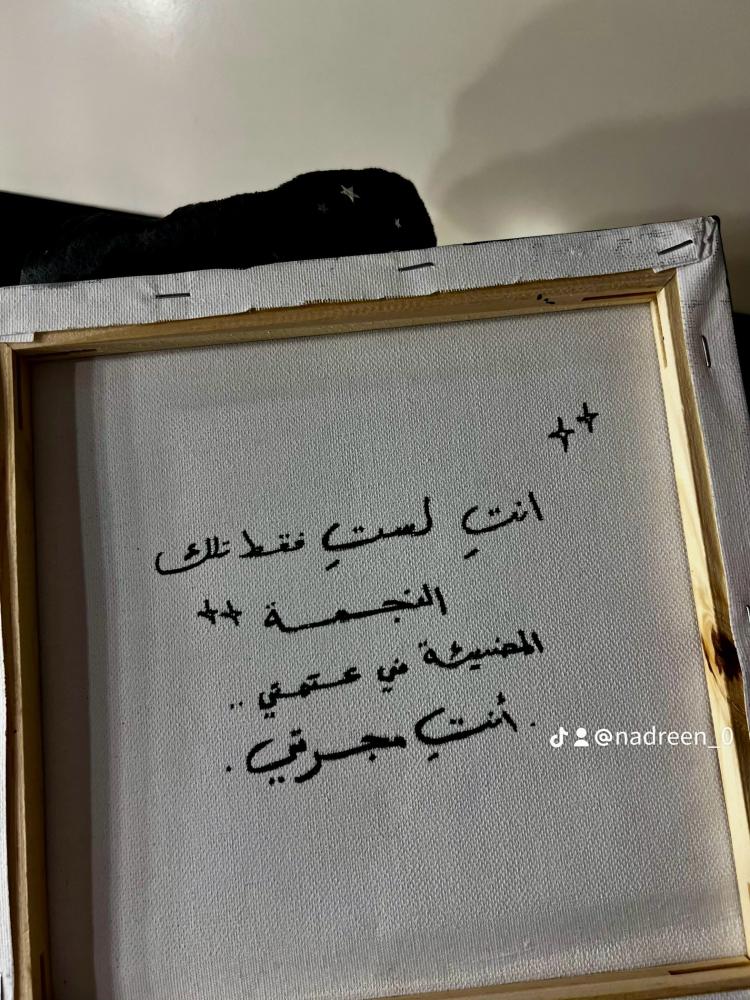 انتِ لستِ فقط تلك
النجمة
المضيئة في عتمتي ..
. أنتِ مجرتي .
@nadreen_0